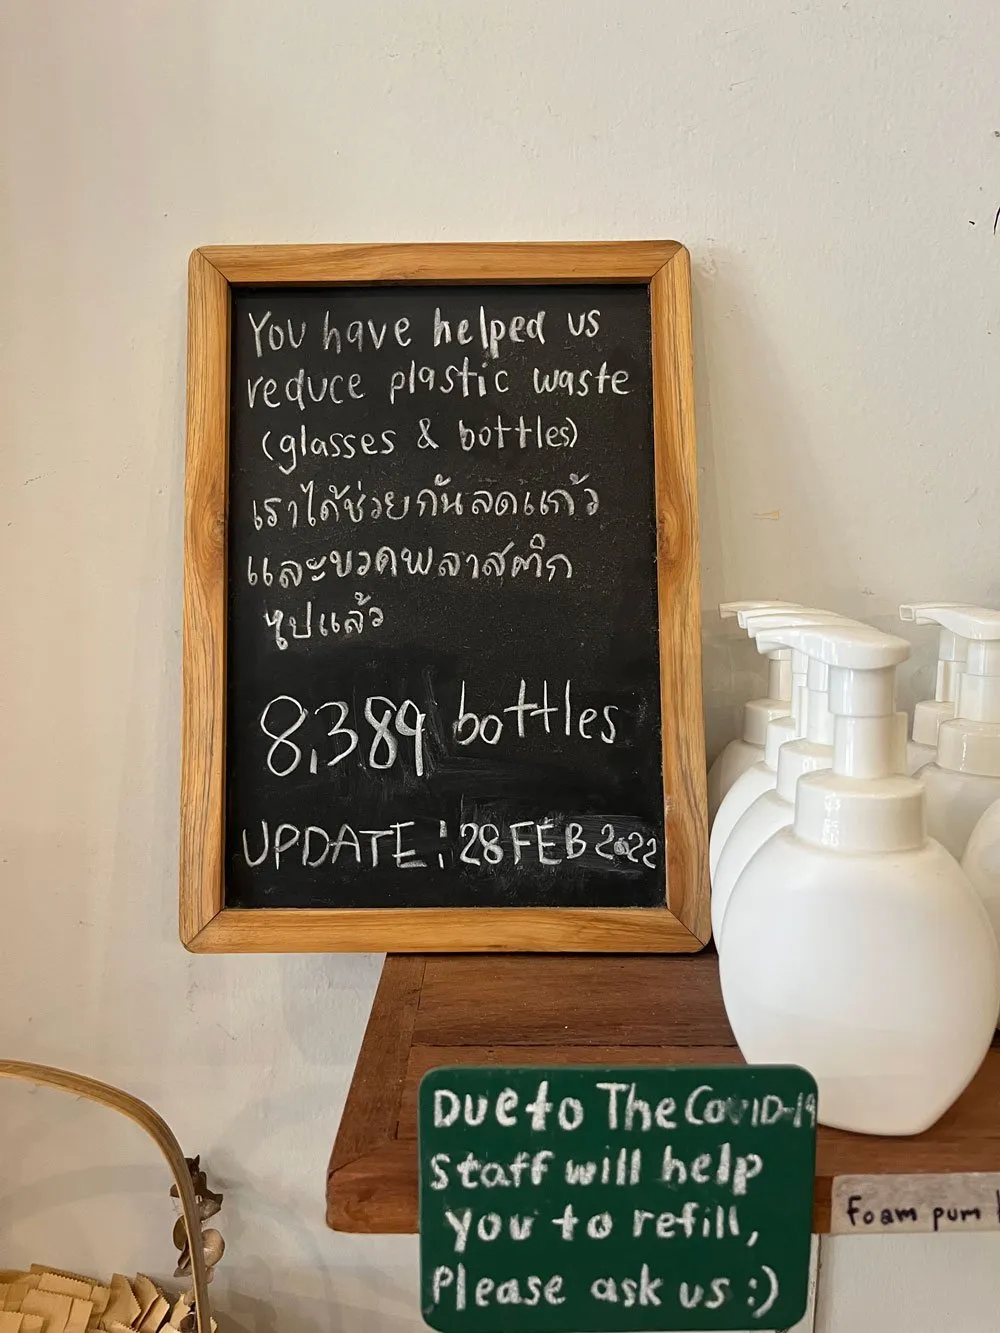 You have helped us
reduce plastic waste
(glasses & bottles)
เราได้ช่วยกันลดแก้ว
และขวดพลาสติก
ไปแล้ว
8,389 bottles
UPDATE : 28 FEB 2022
Due to The COVID-19
Staff will help
you to refill,
Please ask us :)
Foam pum